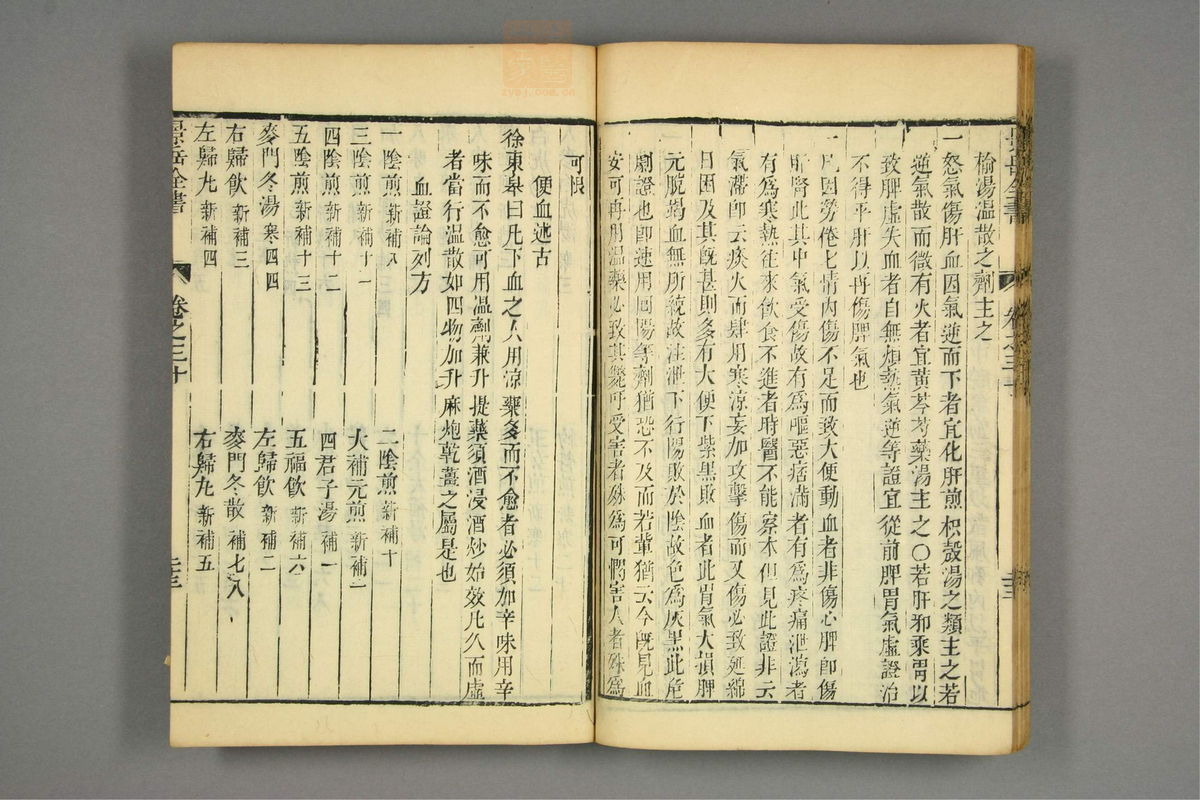 榆湯溫散之劑主之
一怒氣傷肝血因氣逆而下者宜化肝煎枳殼湯之類主之若
逆氣散而微有火者宜黃芩芍藥湯主之〇若肝邪乘胃以
致脾虛失血者自無煩熱氣逆等證宜從前脾胃氣虛證治
不得平肝以再傷脾氣也
一凡因勞倦七情內傷不足而致大便動血者非傷心脾即傷
肝腎此其中氣受傷故有為嘔惡痞滿者有為疼痛泄瀉者
有為寒熱往來飲食不進者時醫不能察本但見此證非云
氣滯即云痰火而肆用寒涼妄加攻擊傷而又傷必致延綿
日困及其旣甚則多有大便下紫黑敗血者此胃氣大損脾
元脫竭血無所統故注泄下行陽敗於陰故色為灰黑此危
劇證也即速用回陽等劑猶恐不及而若輩猶云今旣見血
安可再用溫藥必致其斃吁受害者殊為可憫害人者殊為
可恨
便血述古
徐東皋曰凡下血之人用涼藥多而不愈者必須加辛味用辛
味而不愈可用溫劑兼升提藥須酒浸酒炒始效凡久而虛
者當行溫散如四物加升麻炮乾薑之屬是也
血證論列方
一陰煎新補八
二陰煎新補十
三陰煎新補十一
大補元煎新補一
四陰煎新補十二
四君子湯補一
五陰煎新補十三
五福飲新補六
麥門冬湯寒四四
左歸飲新補二
右歸飲新補三
麥門冬散補七八
左歸丸新補四
右歸丸新補五
景岳全書
卷之三十